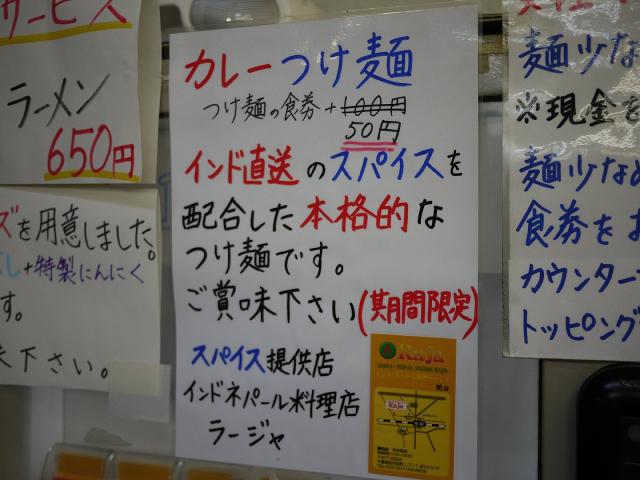 サービス
ラーメン
650円
ズを用意しました。
し+特製にんにく
す。
味下さい。
カレーつけ麺
つけ麺の食券+100円
50円
インド直送のスパイスを
配合した本格的な
つけ麺です。
ご賞味下さい(期間限定)
スパイス提供店
インドネパール料理店
ラージャ
Raja
INDIA・NEPAL FOODS RAJA
柏店
Raja
麺少な
※現金を
麺少なめ
食券をお
カウンター
トッピング